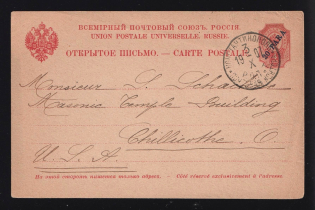 ВСЕМІРНЫЙ ПОЧТОВЫЙ СОЮЗЪ. РОССІЯ
UNION POSTALE UNIVERSELLE. RUSSIE.
ОТКРЫТОЕ ПИСЬМО. — CARTE POSTALE
Monsieur L.
Masonic Temple-Building
Chillicothe. O.
U. S. A.
На этой сторонѣ кромѣ адреса. — Côté réservé exclusivement à l'adresse.